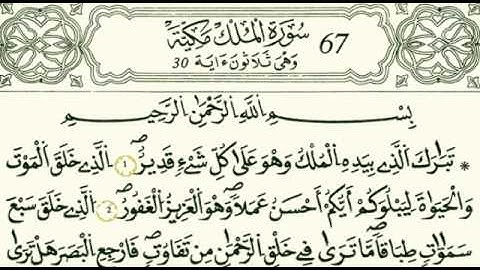 سُورَةُ الْمُلْكِ مَكِّيَّةٌ 67
وَهِيَ ثَلَاثُونَ ءَايَةً 30
بِسْمِ اللَّهِ الرَّحْمَٰنِ الرَّحِيمِ
* تَبَارَكَ الَّذِي بِيَدِهِ الْمُلْكُ وَهُوَ عَلَىٰ كُلِّ شَيْءٍ قَدِيرٌ ١ الَّذِي خَلَقَ الْمَوْتَ
وَالْحَيَوٰةَ لِيَبْلُوَكُمْ أَيُّكُمْ أَحْسَنُ عَمَلًا وَهُوَ الْعَزِيزُ الْغَفُورُ ٢ الَّذِي خَلَقَ سَبْعَ
سَمَٰوَٰتٍ طِبَاقًا مَّا تَرَىٰ فِي خَلْقِ الرَّحْمَٰنِ مِن تَفَٰوُتٍ فَارْجِعِ الْبَصَرَ هَلْ تَرَىٰ